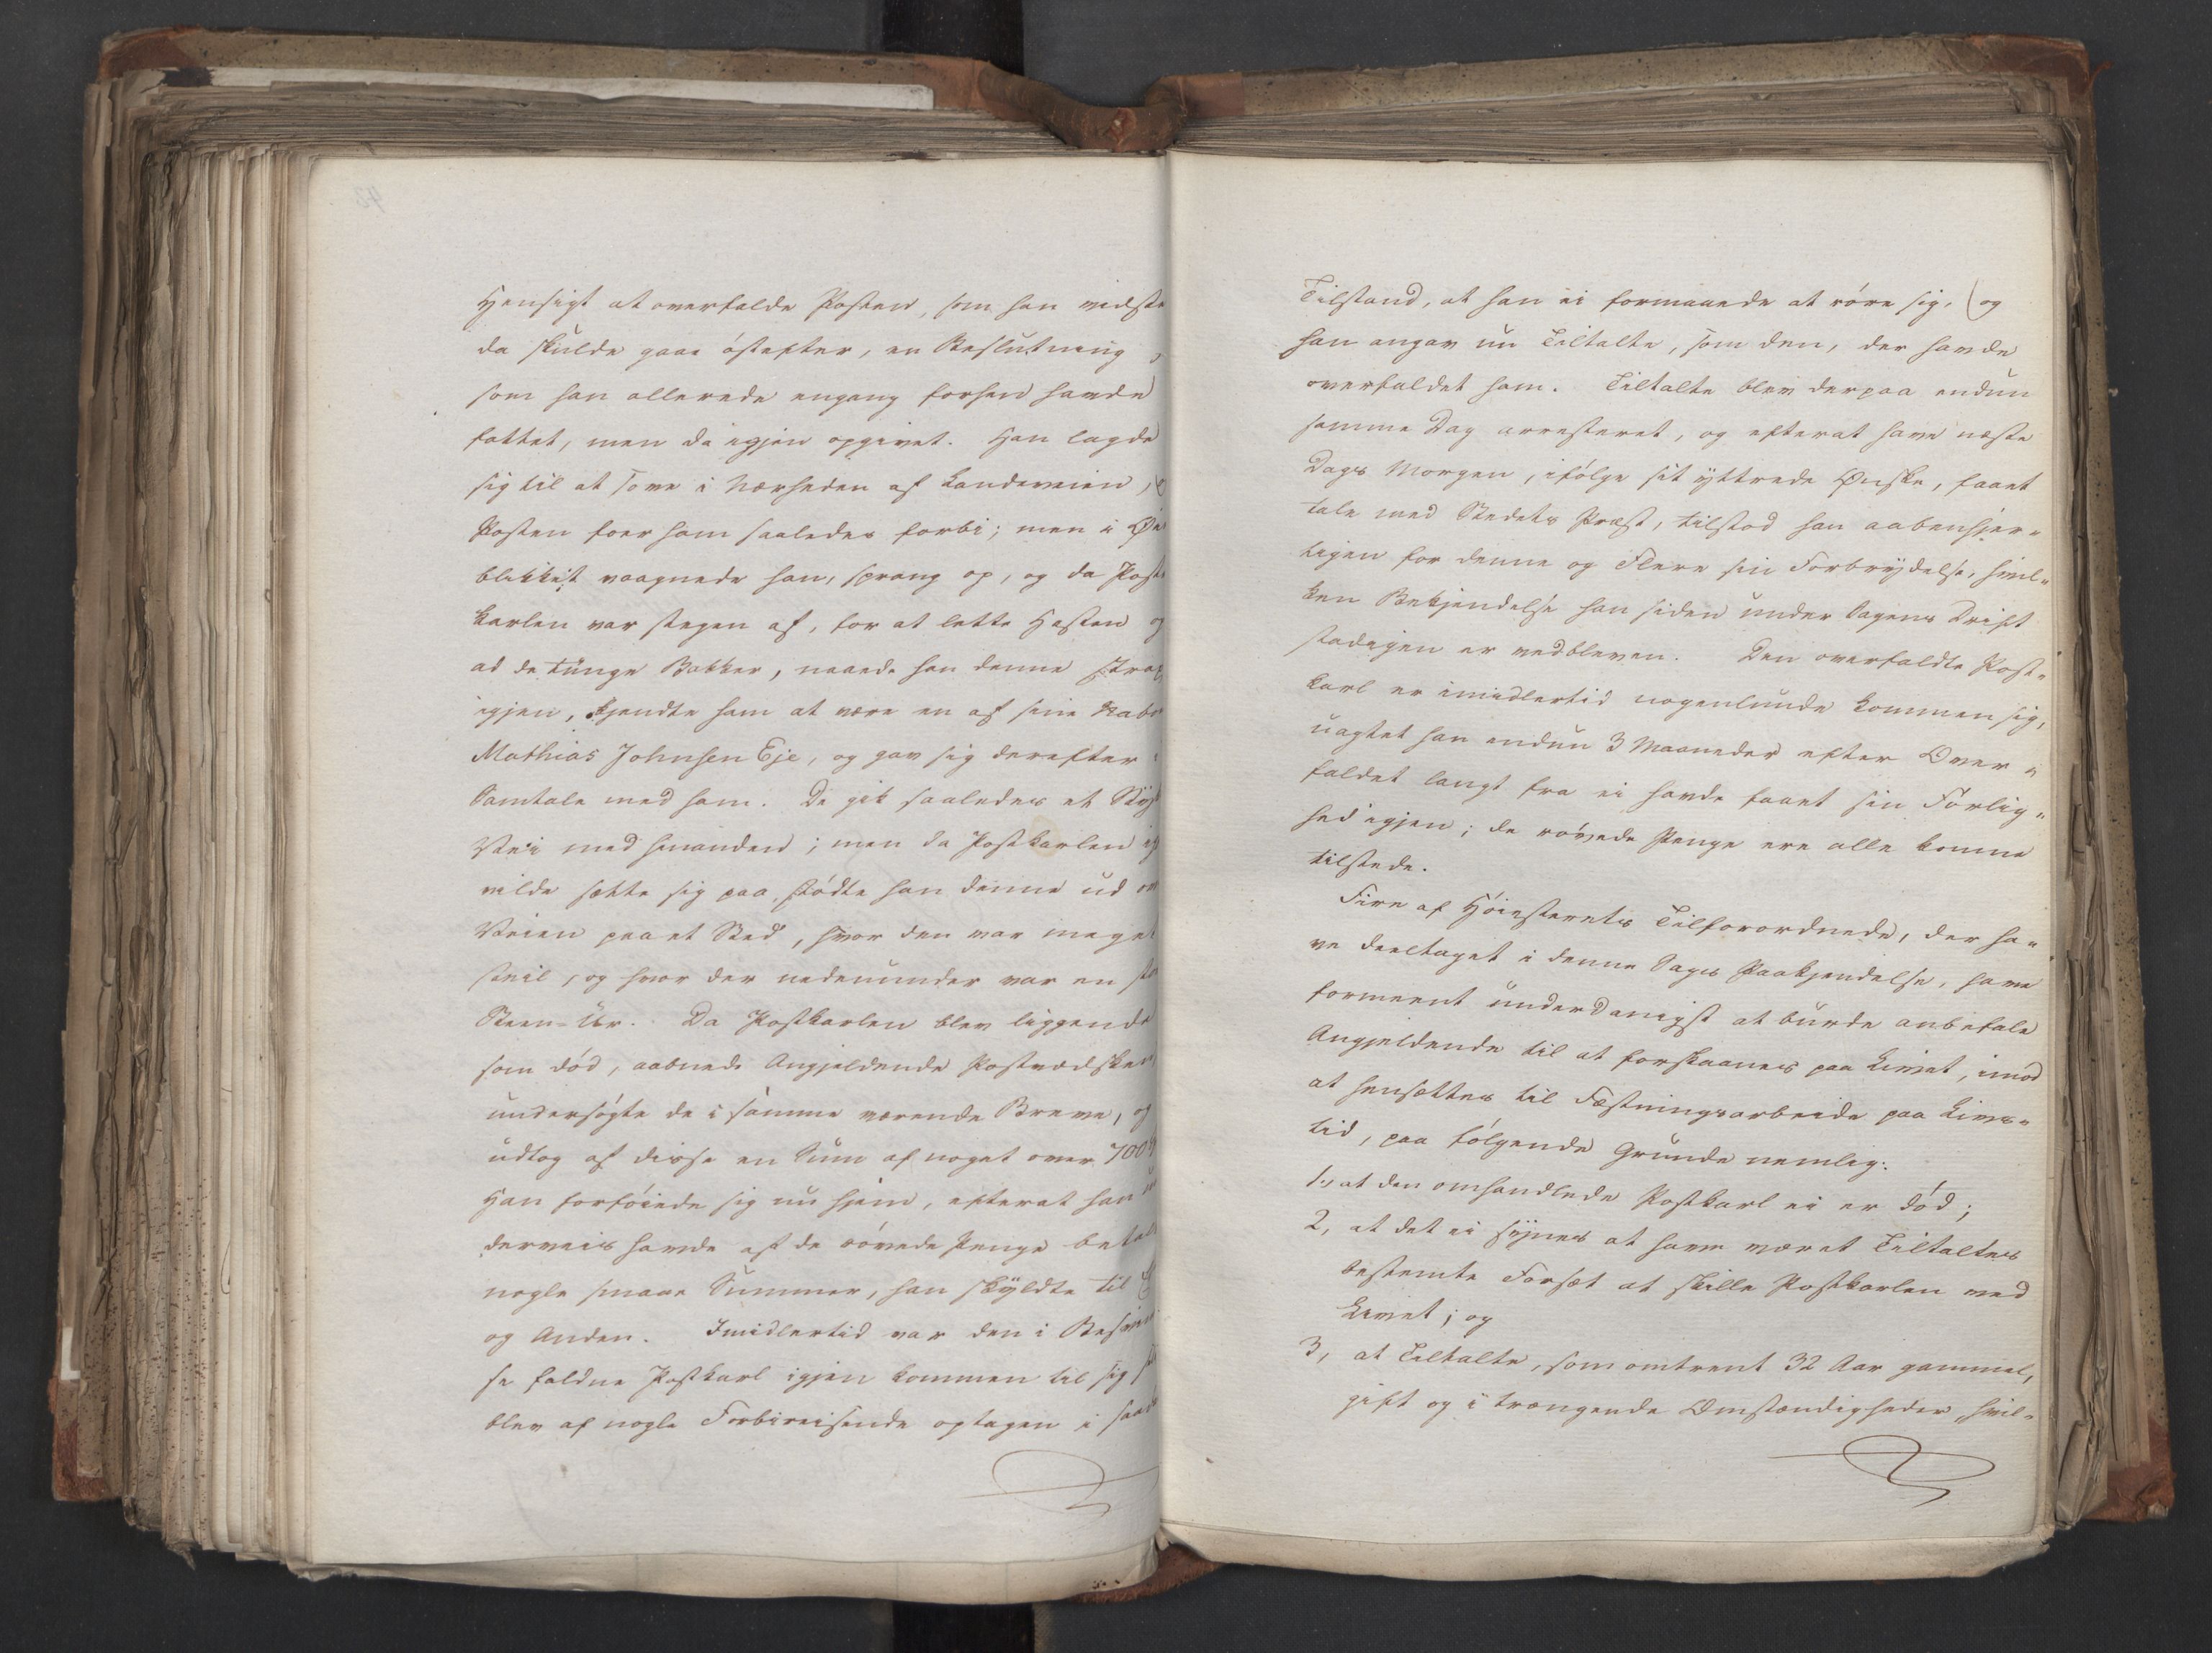 Hensigt at overfalde Posten, som han vidste
da skulde gaae østefter, en Beslutning,
som han allerede engang forhen havde
fattet, men da igjen opgivet. Han lagde
sig til at sove i Nærheden af Landeveien,
Posten foer ham saaledes forbi; men i Øie
blikket vaagnede han, sprang op, og da Post
karlen var stegen af, for at lette Hesten
ad de tunge Bakker, naaede han denne strax
igjen, kjendte ham at være en af sine Nabo
Mathias Johnsen Eje, og gav sig derefter i
Samtale med ham. De gik saaledes et Styk
Vei med hinanden; men da Postkarlen
vilde sætte sig paa, stødte han denne ud
Veien paa et Sted, hvor den var meget
steil, og hvor der nedenunder var en
Steen-Ur. Da Postkarlen blev liggende
som død, aabnede Angjeldende Postvædsken,
undersøgte de i samme værende Breve, og
udtog af disse en Sum af noget over 700
Han forføiede sig nu hjem, efterat han
derveis havde af de røvede Penge betalt
nogle smaae Summer, han skyldte til
og Anden. Imidlertid var den i
se faldne Postkarl igjen kommen til sig
blev af nogle Forbireisende optagen i saadan
Tilstand, at han ei formaaede at røre sig, og
han angav nu Tiltalte, som den, der havde
overfaldet ham. Tiltalte blev derpaa endnu
samme Dag arresteret, og efterat have næste
Dags Morgen, ifølge sit yttrede Ønske, faaet
tale med Stedets Præst, tilstod han aabenhjer-
tigen for denne og Flere sin Forbrydelse, hvil-
ken Bekjendelse han siden under Sagens Drift
stadigen er vedbleven. Den overfaldte Post-
karl er imidlertid nogenlunde kommen sig,
uagtet han endnu 3 Maaneder efter Over-
faldet langt fra ei havde faaet sin Førlig-
hed igjen; de røvede Penge ere alle komne
tilstede.
Fire af Høiesterets Tilforordnede, der ha-
ve deeltaget i denne Sags Paakjendelse, have
formeent underdanigst at burde anbefale
Angjeldende til at forskaanes paa Livet, imod
at hensættes til Fæstningsarbeide paa Livs-
tid, paa følgende Grunde nemlig:
1, at den omhandlede Postkarl ei er død;
2, at det ei synes at have været Tiltaltes
bestemte Forsæt at skille Postkarlen ved
Livet; og
3, at Tiltalte, som omtrent 32 Aar gammel,
gift og i trængende Omstændigheder, hvil-